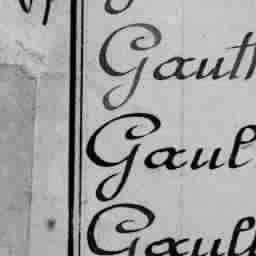 Gauth
Gaul
Gaull